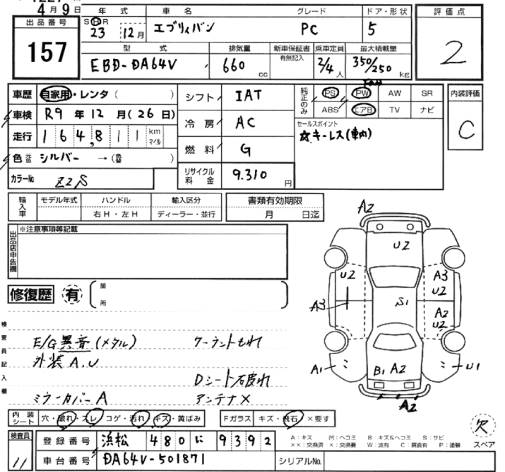 4月9日
出品番号 157
年式 SHR 23 12月
車名 エブリィバン
グレード PC
ドア・形状 5
評価点 2
型式 EBD-DA64V
排気量 660 cc
新車保証書 有無記入
乗車定員 2/4人
最大積載量 350/250 kg
車歴 自家用・レンタ( )
車検 R9年12月(26日)
走行 164,811 km マイル
色 シルバー →( )
カラーNo Z2S
シフト IAT
冷房 AC
燃料 G
リサイクル料金 9.310円
純正のみ PS PW AW SR
ABS エアB TV ナビ
セールスポイント
☆キーレス(車内)
内装評価 C
輸入車 モデル年式 ハンドル 右H・左H 輸入区分 ディーラー・並行
書類有効期限 月 日迄
出品店申告欄 ※注意事項等記載
修復歴 有 箇所
検査員記入欄
E/G異音(メタル) クーラントもれ
外装A.U
Dシート石皮れ
ミラーカバーA アンテナ×
A2
U2
U2 A3
U2
A3 S1 A2
U2
A1 B1 A2 U1
A2
内装シート 穴・破れ・スレ・コゲ・汚れ・キズ・黄ばみ
Fガラス キズ・飛石・×要す
検査員 11
登録番号 浜松 480 に 9392
A:キズ M:ヘコミ B:キズ&ヘコミ S:サビ
××:交換済 X:交換要 W:波有 C:腐蝕有 P:塗装
欠 スペア
車台番号 DA64V-501871
シリアルNo.